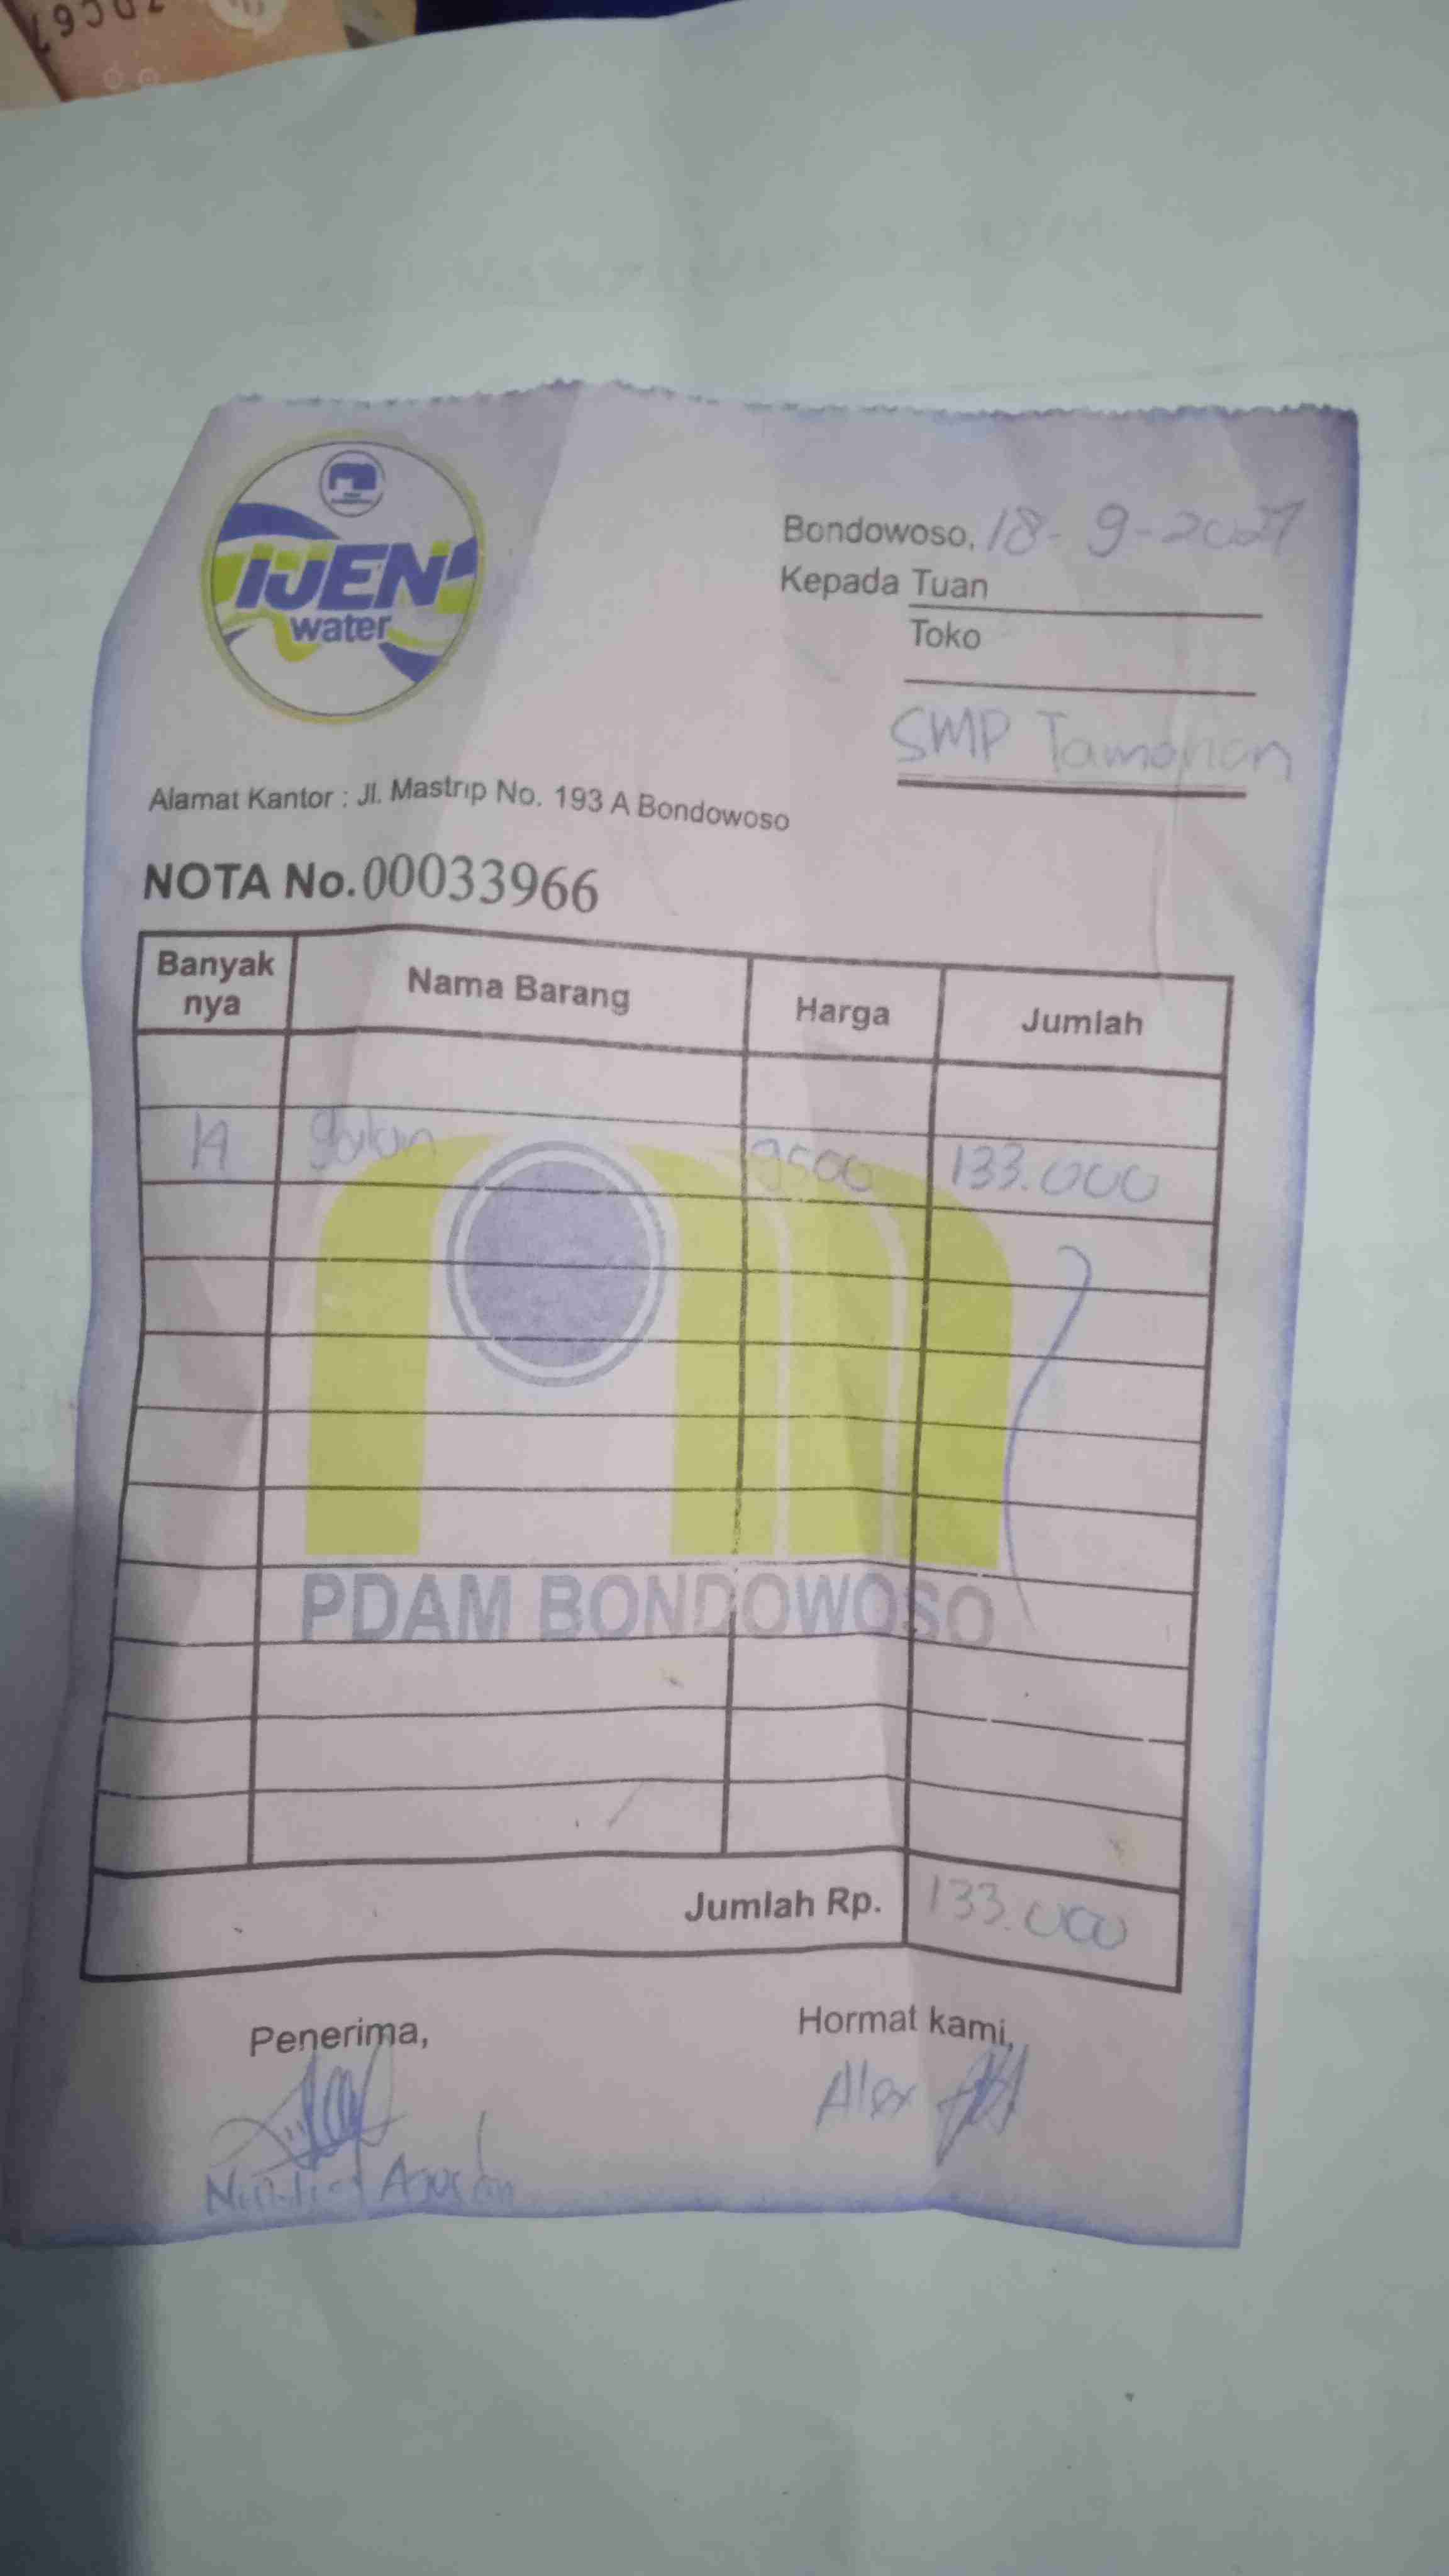 IJEN
water
Bondowoso, 18-9-2021
Kepada Tuan
Toko
SMP Tamanan
Alamat Kantor : Jl. Mastrip No. 193 A Bondowoso
NOTA No. 00033966
Banyak nya Nama Barang Harga Jumlah
14 galon 9500 133.000
PDAM BONDOWOSO
Jumlah Rp. 133.000
Penerima, Hormat kami,
Alex